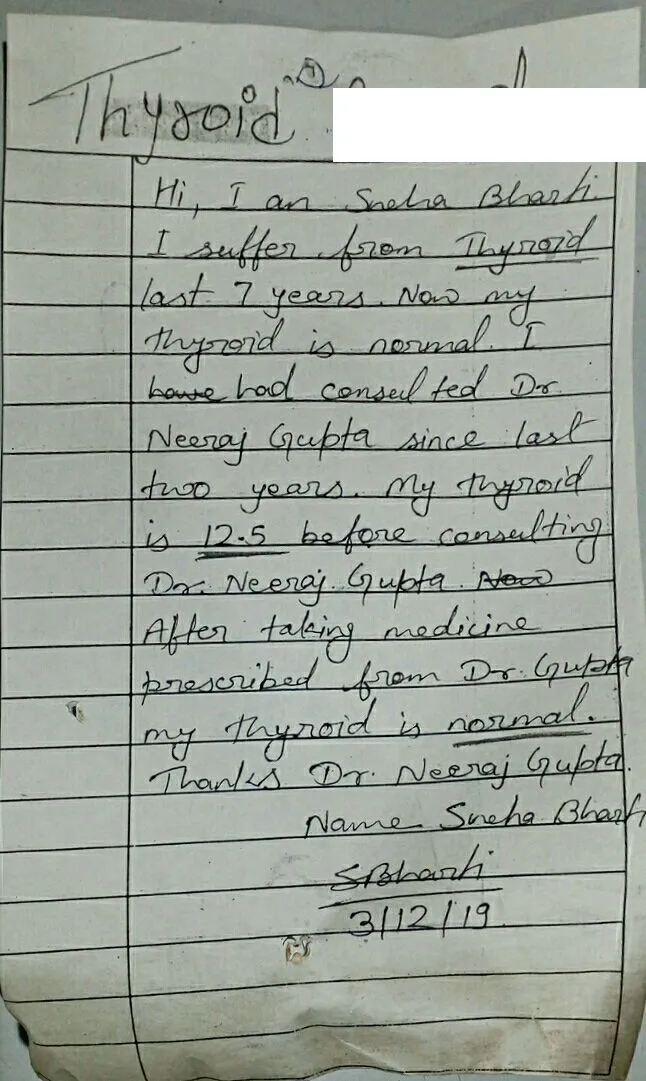 Thyroid
Hi, I an Sneha Bharti.
I suffer from Thyroid
last 7 years. Now my
thyroid is normal. I
have had consulted Dr
Neeraj Gupta since last
two years. My thyroid
is 12.5 before consulting
Dr. Neeraj Gupta. Now
After taking medicine
prescribed from Dr. Gupta
my thyroid is normal.
Thanks Dr. Neeraj Gupta.
Name Sneha Bharti
SBharti
3/12/19